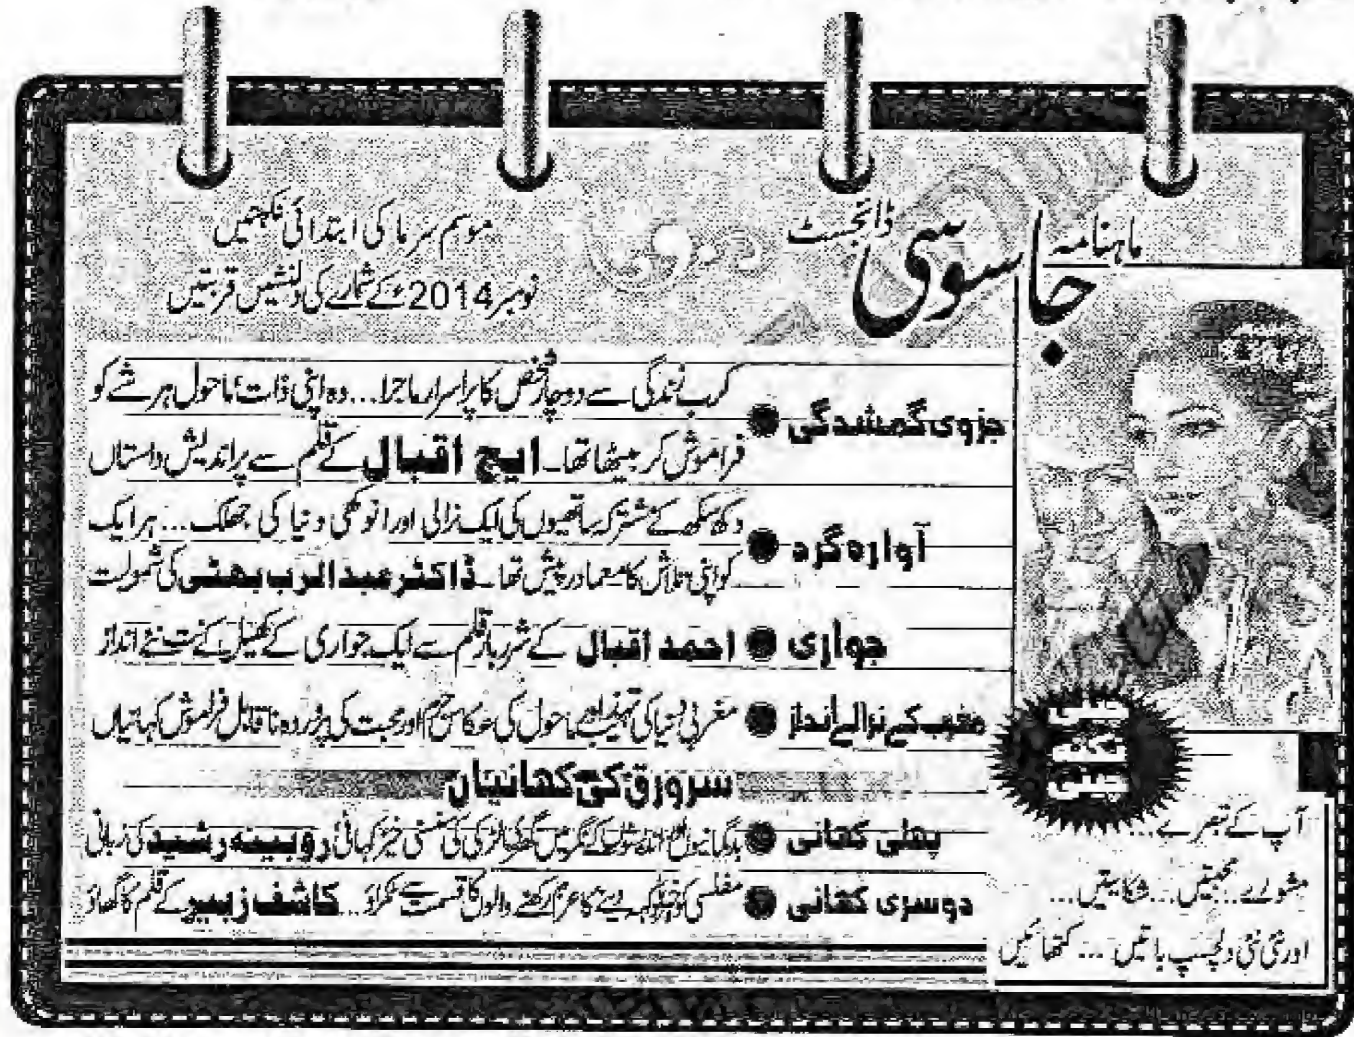 ماہنامہ
جاسوسی ڈائجسٹ
موسم سرما کی ابتدائی نکہتیں
نومبر 2014ء کے شمارے کی دلنشیں قربتیں
جزوی گمشدگی ● کرب زندگی سے دوچار شخص کا پراسرار ماجرا... وہ اپنی ذات، ماحول ہر شے کو
فراموش کر بیٹھا تھا۔ ایچ اقبال کے قلم سے پراندیش داستاں
آوارہ گرد ● دکھ سکھ کے مشترکہ ساتھیوں کی ایک نرالی اور انوکھی دنیا کی جھلک... ہر ایک
کو اپنی تلاش کا معما درپیش تھا۔ ڈاکٹر عبدالرب بھٹی کی شمولیت
جواری ● احمد اقبال کے شرربار قلم سے ایک جواری کے کھیل کے نت نئے انداز
مغرب کے نرالے انداز ● مغربی دنیا کی تہذیب ماحول کی عکاس اور محبت کی ناقابل فراموش کہانیاں
سرورق کی کہانیاں
پہلی کہانی ● بدگمانیوں کے میں لڑکی کی سنسنی خیز کہانی روبینہ رشید کی زبانی
دوسری کہانی ● مفلسی کو دینے کا عزم رکھنے والوں کا قسمت سے ٹکراؤ... کاشف زبیر کے قلم کا گھاؤ
آپ کے تبصرے...
مشورے... محبتیں... شکایتیں...
اور نئی نئی دلچسپ باتیں... کتھائیں